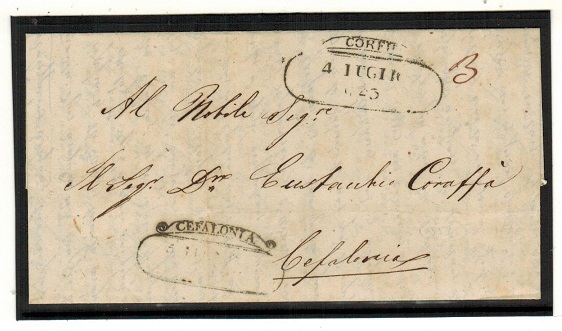 CORFU
4 LUGLIO
3
Al Nobile Sigre
Il Sigr Dre Eustachio Coraffà
CEFALONIA
Cefalonia